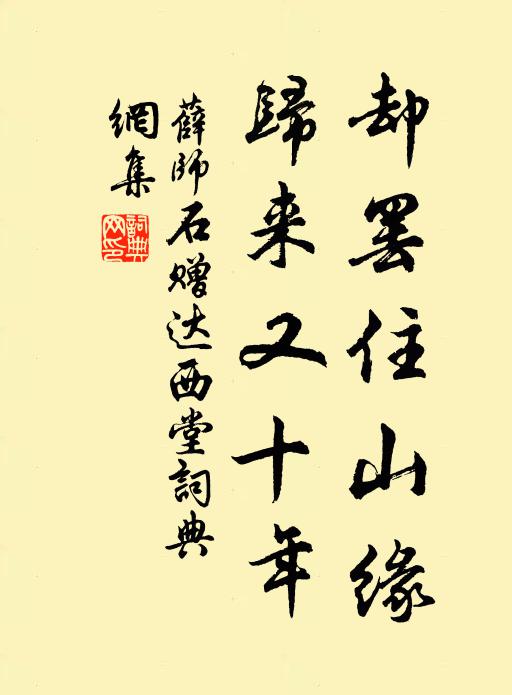 却罢住山缘
歸来又十年
薛师石赠达西堂詞典
網集
詞典網印